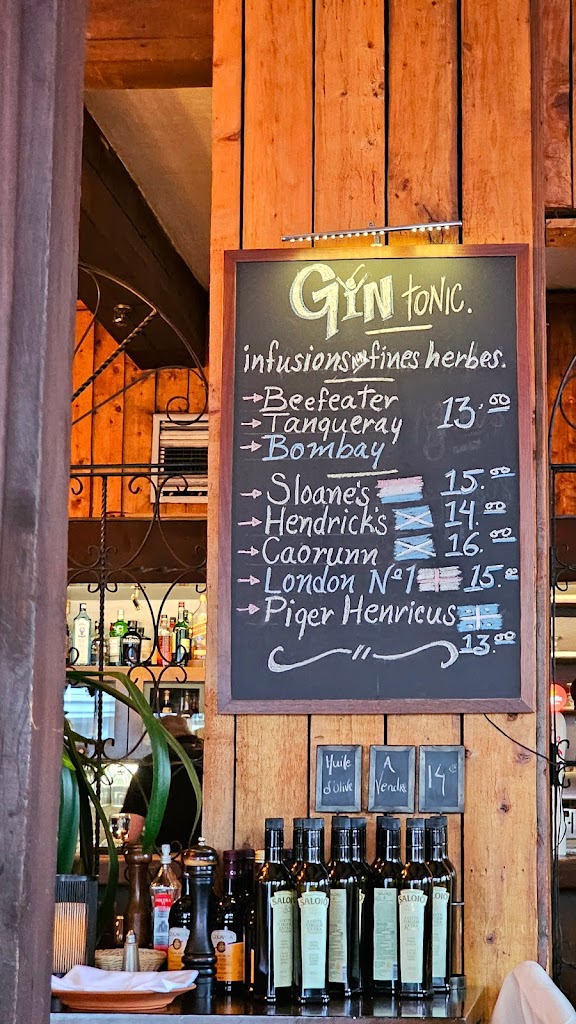 GiN tonic.
infusions aux fines herbes.
→Beefeater
→Tanqueray 13.00
→Bombay
→Sloane's 15.00
→Hendrick's 14.00
→Caorunn 16.00
→London Nº1 15.
→Piger Henricus
13.00
Huile
d'Olive
A
Vendre
14
SALOIO
SALOIO
SALOIO
SALOIO